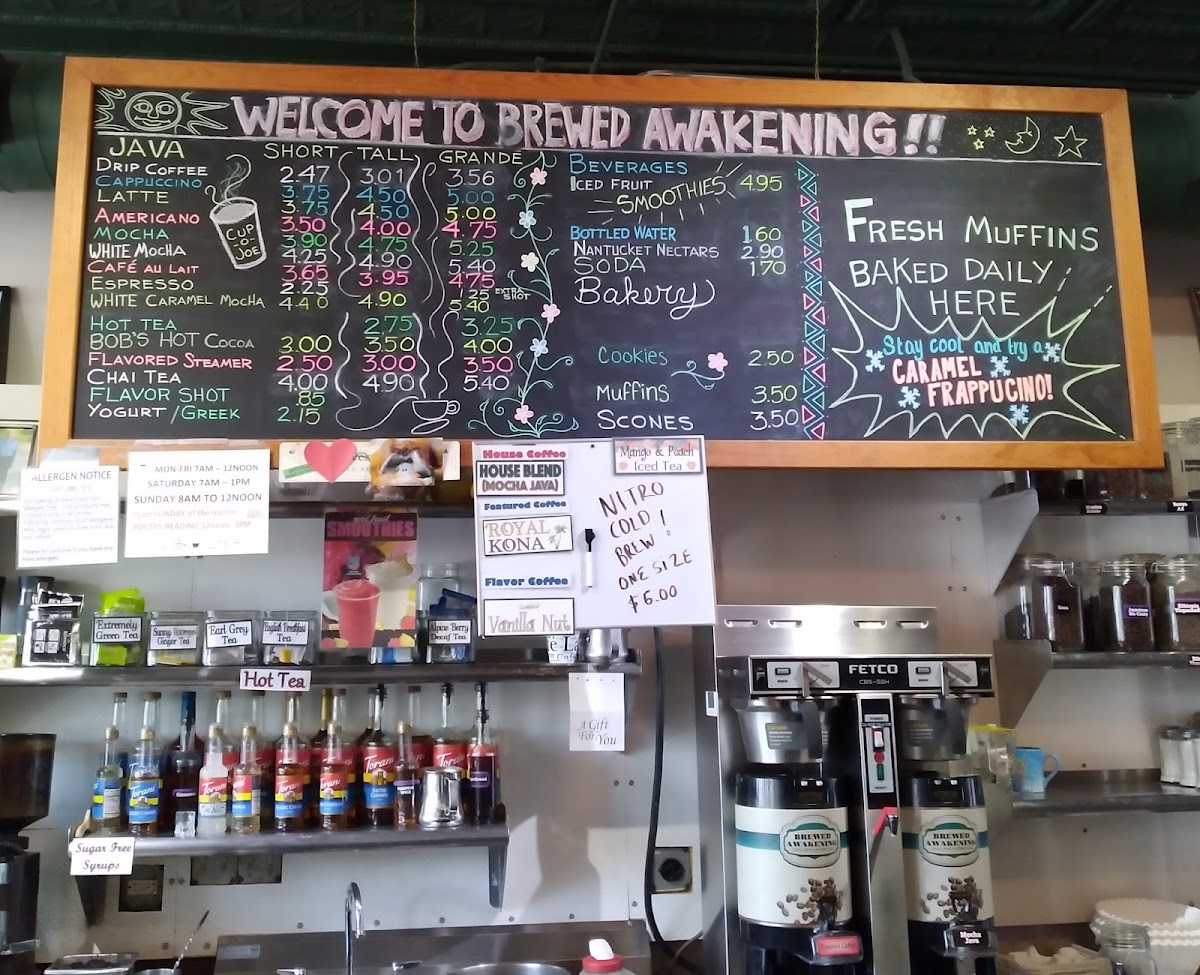 WELCOME TO BREWED AWAKENING!!
JAVA SHORT TALL GRANDE
DRIP COFFEE 2.47 3.01 3.56
CAPPUCCINO 3.75 4.50 5.00
LATTE 3.75 4.50 5.00
AMERICANO 3.50 4.00 4.75
MOCHA 3.90 4.75 5.25
WHITE MOCHA 4.25 4.90 5.40
CAFÉ AU LAIT 3.65 3.95 4.75
ESPRESSO 2.25 1.25 EXTRA SHOT
WHITE CARAMEL MOCHA 4.40 4.90 5.40
HOT TEA 2.75 3.25
BOB'S HOT COCOA 3.00 3.50 4.00
FLAVORED STEAMER 2.50 3.00 3.50
CHAI TEA 4.00 4.90 5.40
FLAVOR SHOT .85
YOGURT/GREEK 2.15
CUP
-O-
JOE
BEVERAGES
ICED FRUIT
SMOOTHIES 4.95
BOTTLED WATER 1.60
NANTUCKET NECTARS 2.90
SODA 1.70
Bakery
COOKIES 2.50
MUFFINS 3.50
SCONES 3.50
FRESH MUFFINS
BAKED DAILY
HERE
Stay cool and try a
CARAMEL
FRAPPUCINO!
ALLERGEN NOTICE
MON-FRI 7AM – 12NOON
SATURDAY 7AM – 1PM
SUNDAY 8AM TO 12NOON
SMOOTHIES
House Coffee
HOUSE BLEND
(MOCHA JAVA)
Featured Coffee
ROYAL
KONA
Flavor Coffee
Vanilla Nut
Mango & Peach
Iced Tea
NITRO
COLD
BREW!
ONE SIZE
$6.00
Extremely
Green Tea
Ginger Tea
Earl Grey
Tea
English Breakfast
Tea
Alpine Berry
Decaf Tea
Hot Tea
A Gift
For You
Torani
Torani
Torani
Torani
Sugar Free
Syrups
FETCO
BREWED
AWAKENING
BREWED
AWAKENING
Mocha
Java